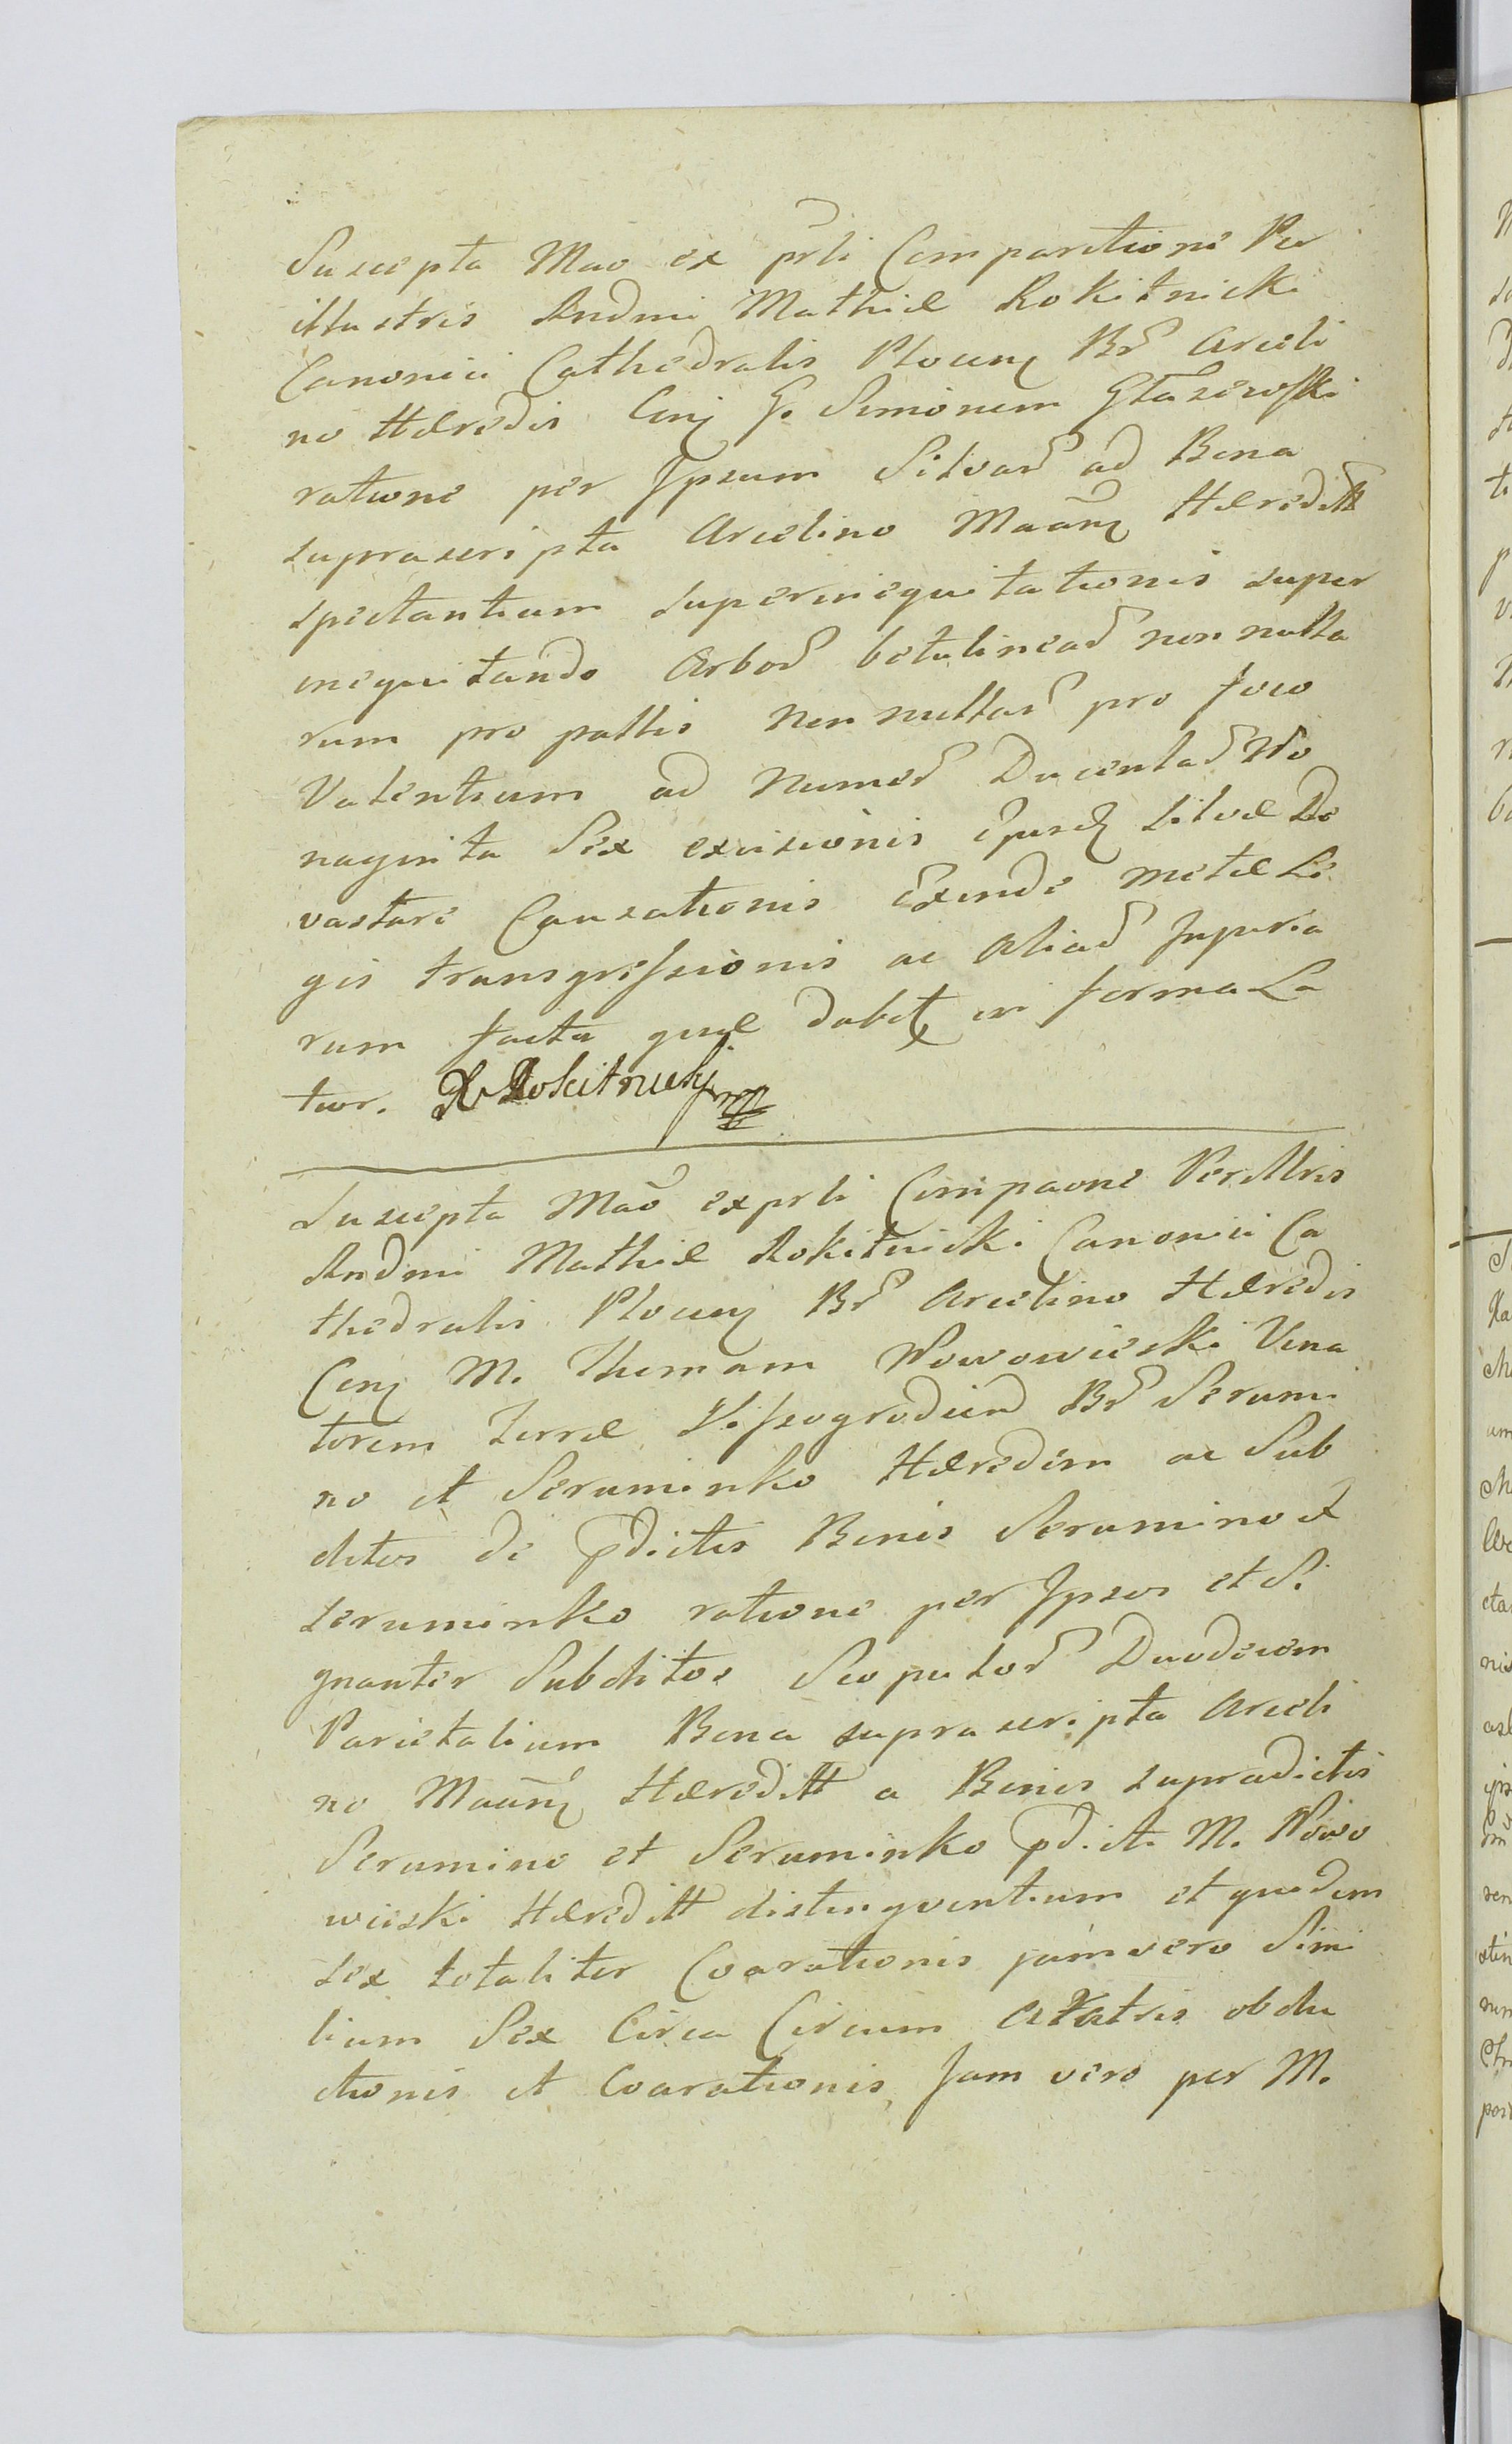 Suscepta Mao ex prli Comparitione Per
illustris Rndmi Mathiæ Rokitnicki
Canonici Cathedralis Plocen Br Arceli
no Hæredis Con G. Simonem Głażewski
ratione per Ipsum Silvar ad Bona
suprascripta Arcelino Maan Hæreditt
spectantium superinequitationis super
inequitando Arbor betulinear nonnulla
rum pro pallis Non nullar pro foco
Valentium ad Numer Ducentar No
naginta Sex excisionis Ejusd Silvæ De
vastare Causationis Exinde metæ Le
gis transgressionis ac Aliar Injuria
rum facta quæ dabit in forma La
tior. X Rokitnicki mpp
Suscepta Mao ex prli Compaone Perillris
Rndmi Mathiæ Rokitnicki Canonici Ca
thedralis Plocen Br Arcelino Hæredis
Con M. Thomam Nowowieski Vena
torem Terræ Vissogrodien Br Serumi
no et Seruminko Hæredem ac Sub
ditos de pdictis Bonis Serumino et
Seruminko ratione per Ipsos et Si
gnanter Subditos Scopulor Duodecem
Parietalium Bona suprascripta Arceli
no Maan Hæreditt a Bonis supradictis
Serumino et Seruminko pdicti M. Nowo
wieski Hæreditt distinguentium et quidem
sex totaliter Coarationis jam vero Simi
lium Sex Circa Circum Aratris obdu
ctionis et Coarationis, Jam vero per M.